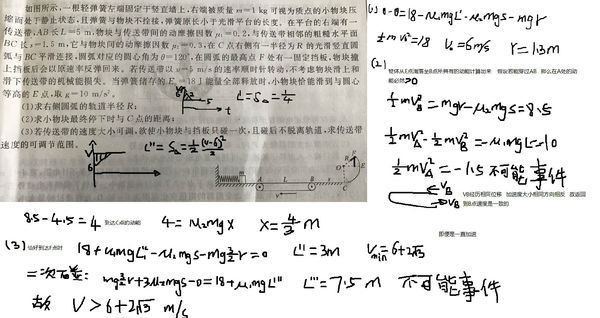 如图所示,一根轻弹簧左端固定于竖直墙上,右端被质量 m=1 kg 可视为质点的小物块压
缩而处于静止状态,且弹簧与物块不拴接,弹簧原长小于光滑平台的长度。在平台的右端有一
传送带,AB 长 L=5 m,物块与传送带间的动摩擦因数 μ₁=0.2,与传送带相邻的粗糙水平面
BC 长 s=1.5 m,它与物块间的动摩擦因数 μ₂=0.3,在 C 点右侧有一半径为 R 的光滑竖直圆
弧与 BC 平滑连接,圆弧对应的圆心角为 θ=120°,在圆弧的最高点 F 处有一固定挡板,物块撞
上挡板后会以原速率反弹回来。若传送带以 v=5 m/s 的速率顺时针转动,不考虑物块滑上和
滑下传送带的机械能损失。当弹簧储存的 Eₚ=18 J 能量全部释放时,小物块恰能滑到与圆心
等高的 E 点,取 g=10 m/s²。
(1)求右侧圆弧的轨道半径 R;
(2)求小物块最终停下时与 C 点的距离;
(3)若传送带的速度大小可调,欲使小物块与挡板只碰一次,且碰后不脱离轨道,求传送带
速度的可调节范围。
(1) 0-0=18-μ₁mgL'-μ₂mgs-mgr
½mv²=18 v₀=6m/s r=1.3m
(2)
½mV_B²=mgr-μ₂mgs=8.5
½mV_A²-½mV_B²=-μ₁mgL=-10
½mV_A²=-1.5 不可能事件
V_B
V_B
到B点速度是一致的
即便是一直加速
8.5-4.5=4 到达C点的动能 4=μ₂mgx x=4/3 m
(3) 恰好到达F点时 18+μ₁mgL''-μ₂mgs-mg3/2r=0 L''=3m V_min=6+2√3
二次后至: mg3/2r+3μ₂mgs-0=18+μ₁mgL''' L'''=7.5m 不可能事件
故 V>6+2√3 m/s